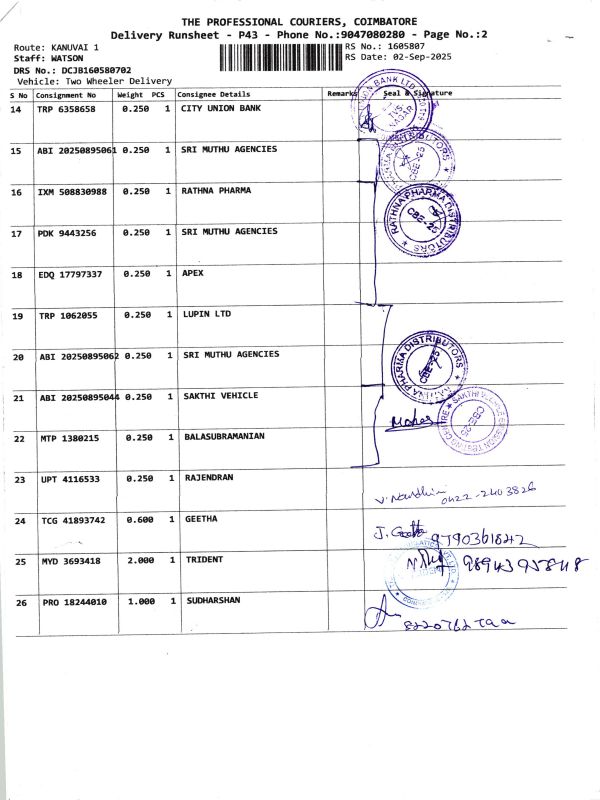 THE PROFESSIONAL COURIERS, COIMBATORE
Delivery Runsheet - P43 - Phone No.:9047080280 - Page No.:2
Route: KANUVAI 1 RS No.: 1605807
Staff: WATSON RS Date: 02-Sep-2025
DRS No.: DCJB160580702
Vehicle: Two Wheeler Delivery
S No Consignment No Weight PCS Consignee Details Remarks Seal & Signature
14 TRP 6358658 0.250 1 CITY UNION BANK
15 ABI 20250895061 0.250 1 SRI MUTHU AGENCIES
16 IXM 508830988 0.250 1 RATHNA PHARMA
RATHNA PHARMA DISTRIBUTORS CBE-25
17 PDK 9443256 0.250 1 SRI MUTHU AGENCIES
18 EDQ 17797337 0.250 1 APEX
19 TRP 1062055 0.250 1 LUPIN LTD
20 ABI 20250895062 0.250 1 SRI MUTHU AGENCIES
RATHNA PHARMA DISTRIBUTORS CBE-25
21 ABI 20250895044 0.250 1 SAKTHI VEHICLE
22 MTP 1380215 0.250 1 BALASUBRAMANIAN
23 UPT 4116533 0.250 1 RAJENDRAN
0422-2403826
24 TCG 41893742 0.600 1 GEETHA J. Geetha
9790361842
25 MYD 3693418 2.000 1 TRIDENT 9894395848
26 PRO 18244010 1.000 1 SUDHARSHAN